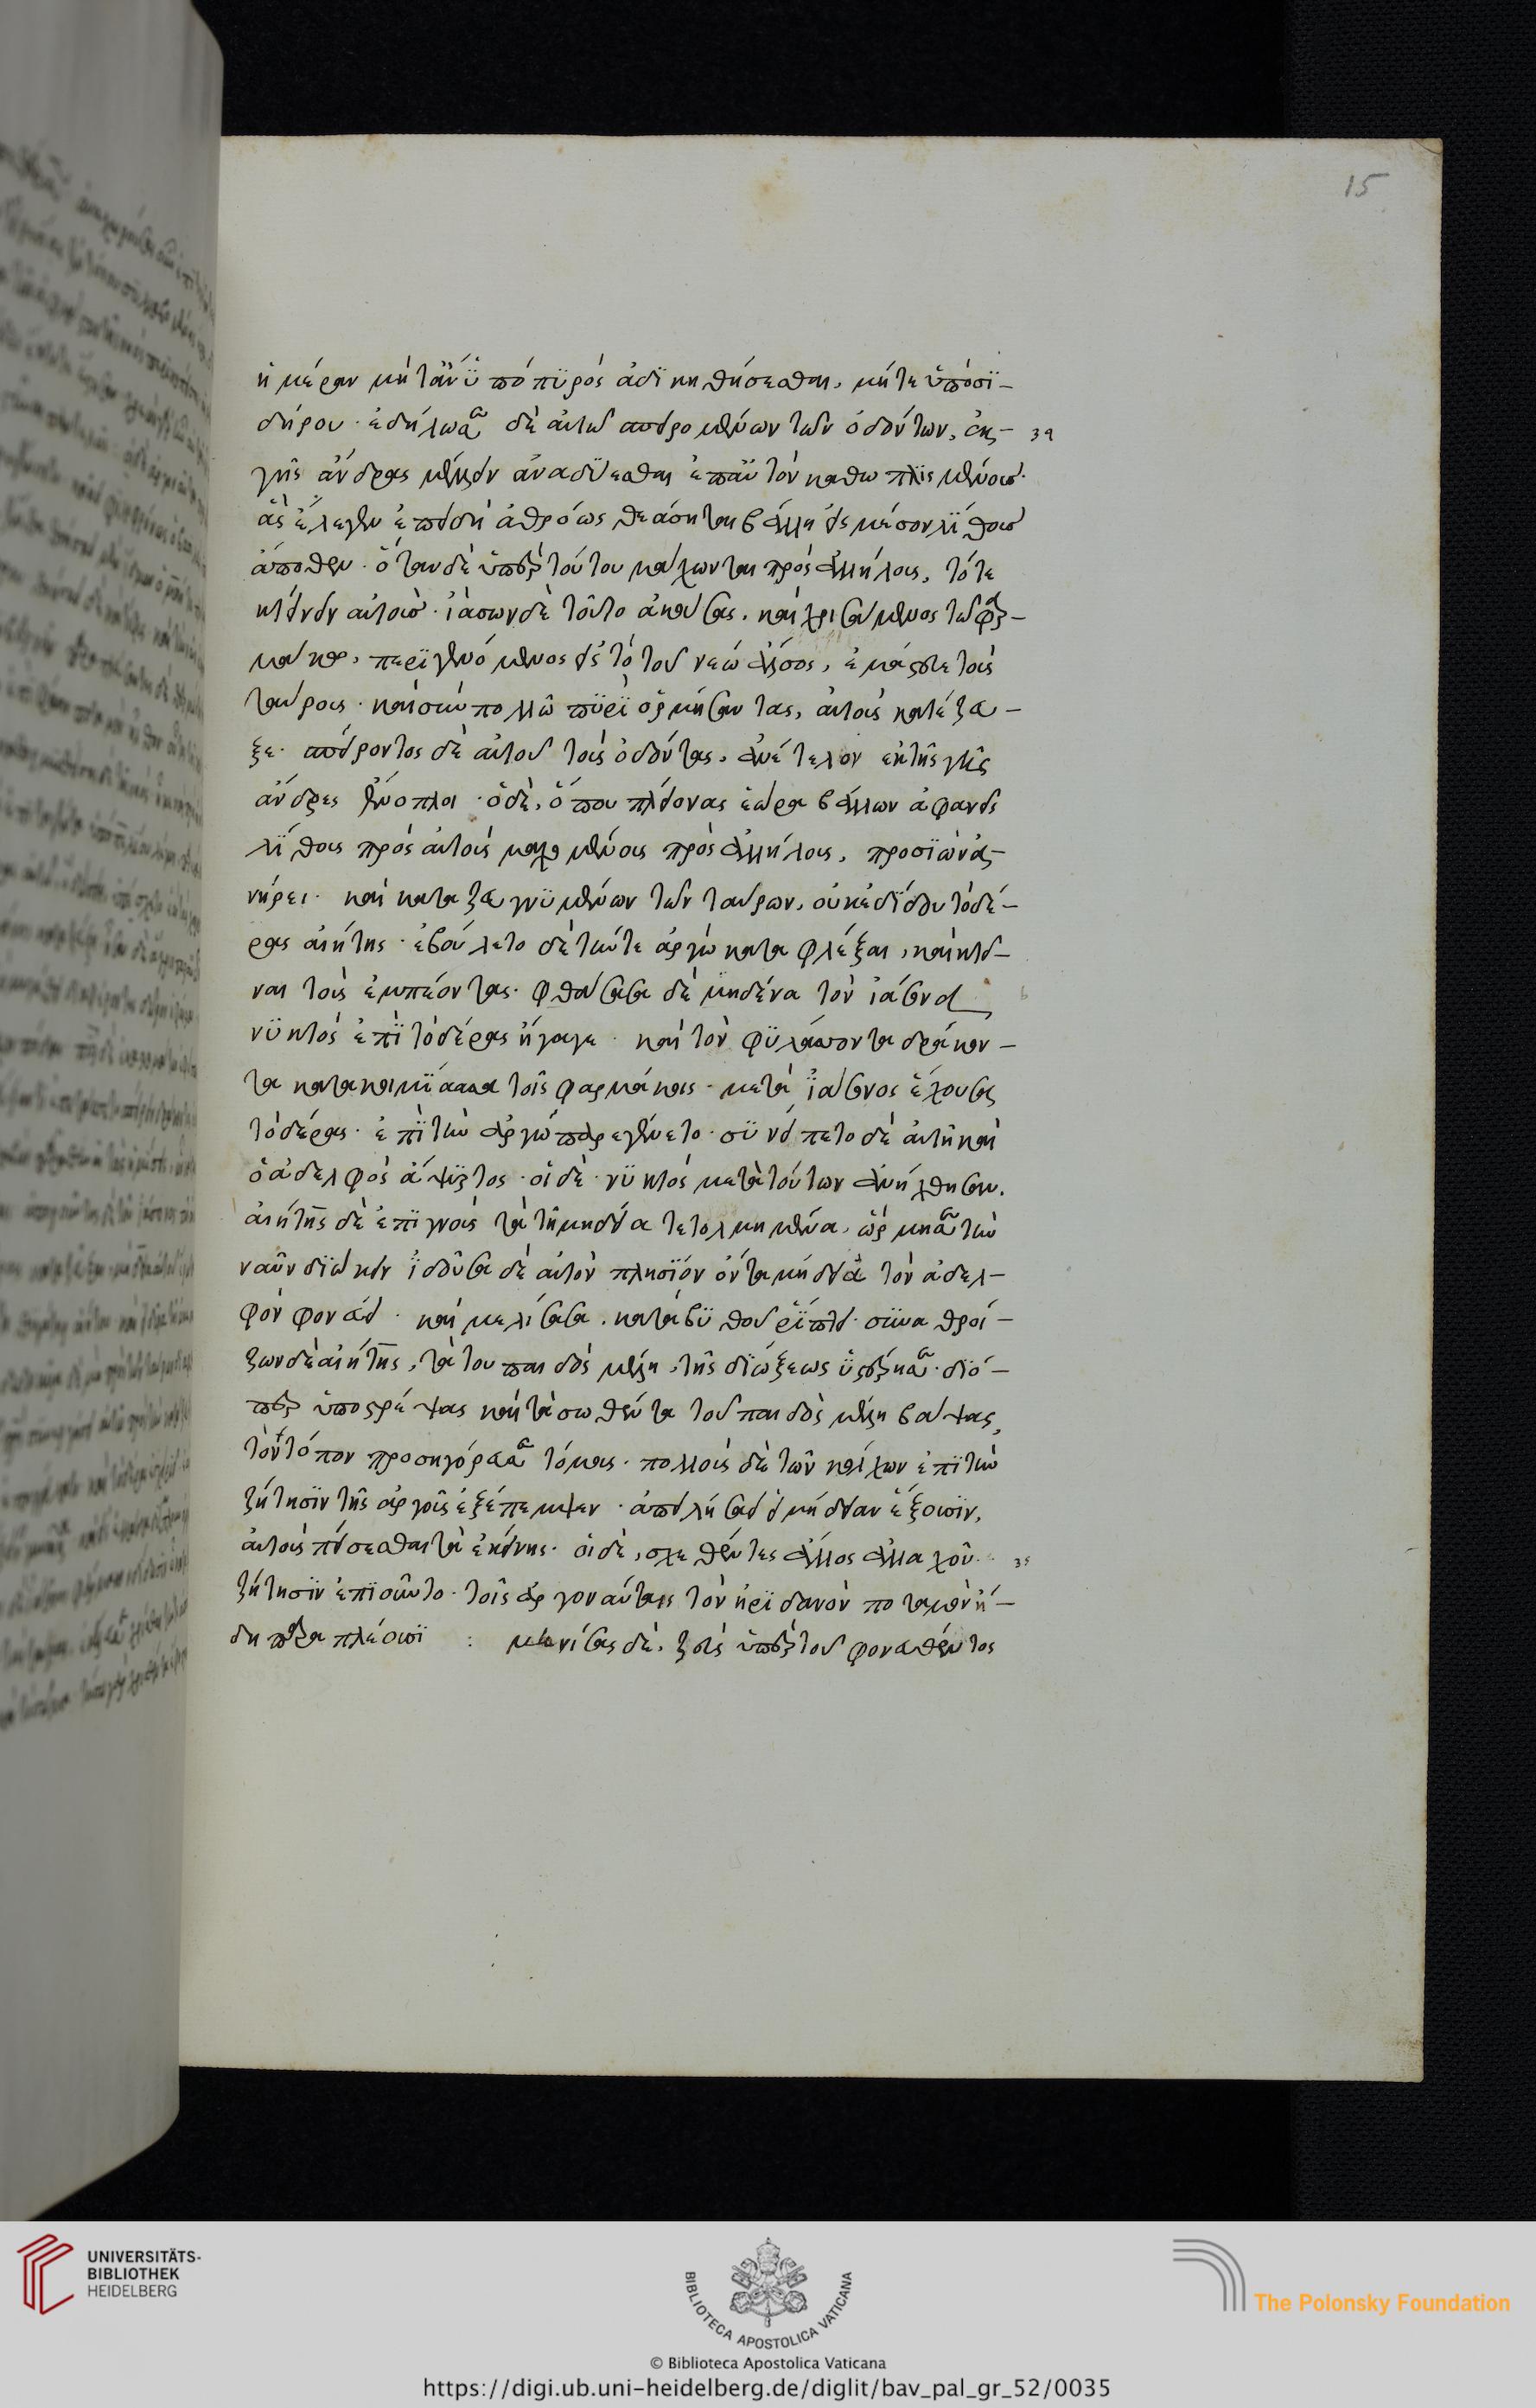 15
ἡμέραν μήτ' ἂν ὑπὸ πυρὸς ἀδικηθήσεσθαι, μήτε ὑπὸ σι–
δήρου. ἐδήλωσε δὲ αὐτῶ σπειρομένων τῶν ὀδόντων, ἐκ– 39
γῆς ἄνδρας μέλλειν ἀναδύεσθαι ἐπ' αὐτὸν καθωπλισμένους.
οὓς ἔλεγεν ἐπειδὴ ἀθρόως θεάσηται βάλλειν εἰς μέσον λίθους
ἄποθεν. ὅταν δὲ ὑπὲρ τούτου μάχωνται πρὸς ἀλλήλους, τότε
κτείνειν αὐτούς. ἰάσων δὲ τοῦτο ἀκούσας. καὶ χρισάμενος τῶ φαρ–
μάκω, περιγενόμενος εἰς τὸ τοῦ νεὼ ἄλσος, ἐμάστευε τοὺς
ταύρους. καὶ σὺν πολλῶ πυρὶ ὁρμήσαντας, αὐτοὺς κατέζευ–
ξε. σπείροντος δὲ αὐτοῦ τοὺς ὀδόντας, ἀνέτελλον ἐκ τῆς γῆς
ἄνδρες ἔνοπλοι. ὁ δὲ, ὅπου πλείονας ἑώρα βάλλων ἀφανεῖς
λίθους πρὸς αὐτοὺς μαχομένους πρὸς ἀλλήλους, προσιὼν ἀ–
νήρει. καὶ καταζευγνυμένων τῶν ταύρων, οὐκ ἐδίδου τὸ δέ–
ρας αἰήτης. ἐβούλετο δὲ τήν τε ἀργὼ καταφλέξαι, καὶ κτεῖ–
ναι τοὺς ἐμπλέοντας. φθάσασα δὲ μήδεια τὸν ἰάσονα
νυκτὸς ἐπὶ τὸ δέρας ἤγαγε. καὶ τὸν φυλάσσοντα δράκον–
τα κατακοιμίσασα τοῖς φαρμάκοις. μετὰ ἰάσονος ἔχουσα
τὸ δέρας. ἐπὶ τὴν ἀργὼ παρεγένετο. συνείπετο δὲ αὐτῆ καὶ
ὁ ἀδελφὸς ἄψυρτος. οἱ δὲ νυκτὸς μετὰ τούτων ἀνήχθησαν.
αἰήτης δὲ ἐπιγνοὺς τὰ τῆ μηδεία τετολμημένα, ὥρμησε τὴν
ναῦν διώκειν ἰδοῦσα δὲ αὐτὸν πλησίον ὄντα μήδεια τὸν ἀδελ–
φὸν φονεύει. καὶ μελίσασα, κατὰ βυθοῦ ῥίπτει. συναθροί–
ζων δὲ αἰήτης, τὰ τοῦ παιδὸς μέλη, τῆς διώξεως ὑστέρησε. διό–
περ ὑποστρέψας καὶ τὰ σωθέντα τοῦ παιδὸς μέλη θάψας,
τὸν τόπον προσηγόρευσε τόμους. πολλοὺς δὲ τῶν κόλχων ἐπὶ τὴν
ζήτησιν τῆς ἀργοῦς ἐξέπεμψεν. ἀπειλήσας εἰ μὴ μήδειαν ἕξουσιν,
αὐτοὺς πείσεσθαι τὰ ἐκείνης. οἱ δὲ, σχεθέντες ἄλλος ἀλλαχοῦ 35
ζήτησιν ἐποιοῦντο. τοῖς ἀργοναύταις τὸν ἠριδανὸν ποταμὸν ἤ–
δη παραπλέουσι : μηνίσας δὲ, ζεὺς ὑπὲρ τοῦ φονευθέντος
UNIVERSITÄTS-
BIBLIOTHEK
HEIDELBERG
BIBLIOTECA APOSTOLICA VATICANA
The Polonsky Foundation
© Biblioteca Apostolica Vaticana
https://digi.ub.uni-heidelberg.de/diglit/bav_pal_gr_52/0035